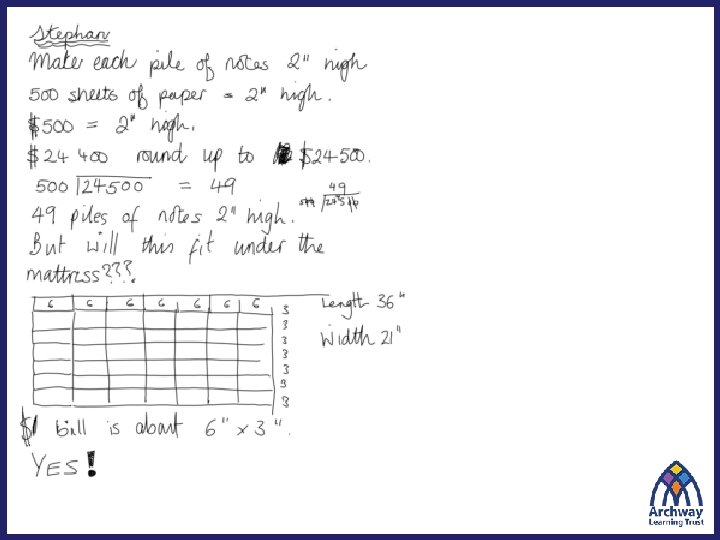 Stephan
Make each pile of notes 2" high
500 sheets of paper = 2" high.
$500 = 2" high.
$24 400 round up to $24500.
500 24500 = 49
49
49 piles of notes 2" high.
But will this fit under the
mattress???
6 6 6 6 6 6 6
3
3
3
3
3
3
3
Length 36"
Width 21"
$1 bill is about 6" x 3".
YES!
Archway
Learning Trust